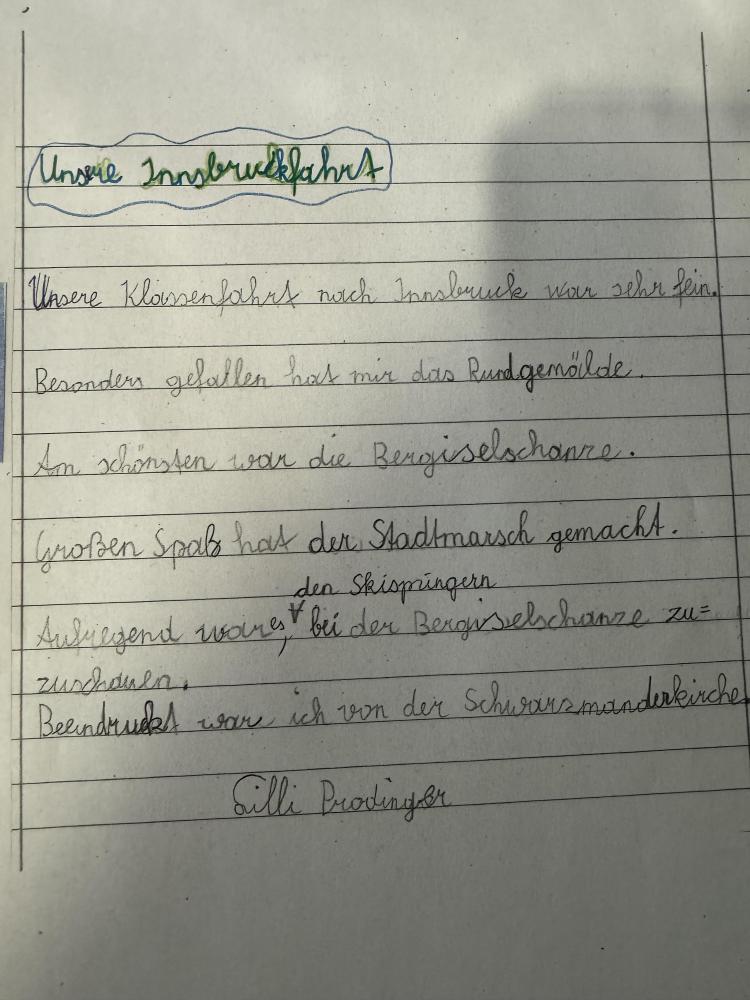 Unsere Innsbruckfahrt
Unsere Klassenfahrt nach Innsbruck war sehr fein.
Besonders gefallen hat mir das Rundgemälde.
Am schönsten war die Bergiselschanze.
Großen Spaß hat der Stadtmarsch gemacht.
den Skispringern
Aufregend war es, bei der Bergiselschanze zu=
zuschauen.
Beeindruckt war ich von der Schwarzmanderkirche
Silli Prodinger